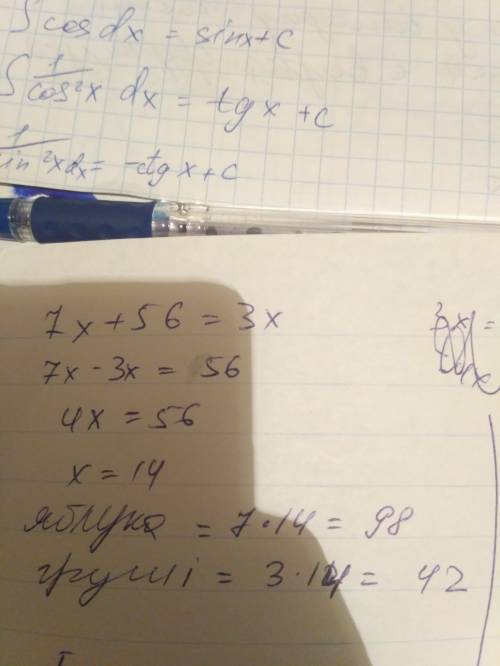 ∫ cos dx = sinx + c
∫ 1/cos²x dx = tg x + c
1/sin²x dx = -ctg x + c
7x + 56 = 3x
7x - 3x = 56
4x = 56
x = 14
яблука = 7·14 = 98
груші = 3·14 = 42